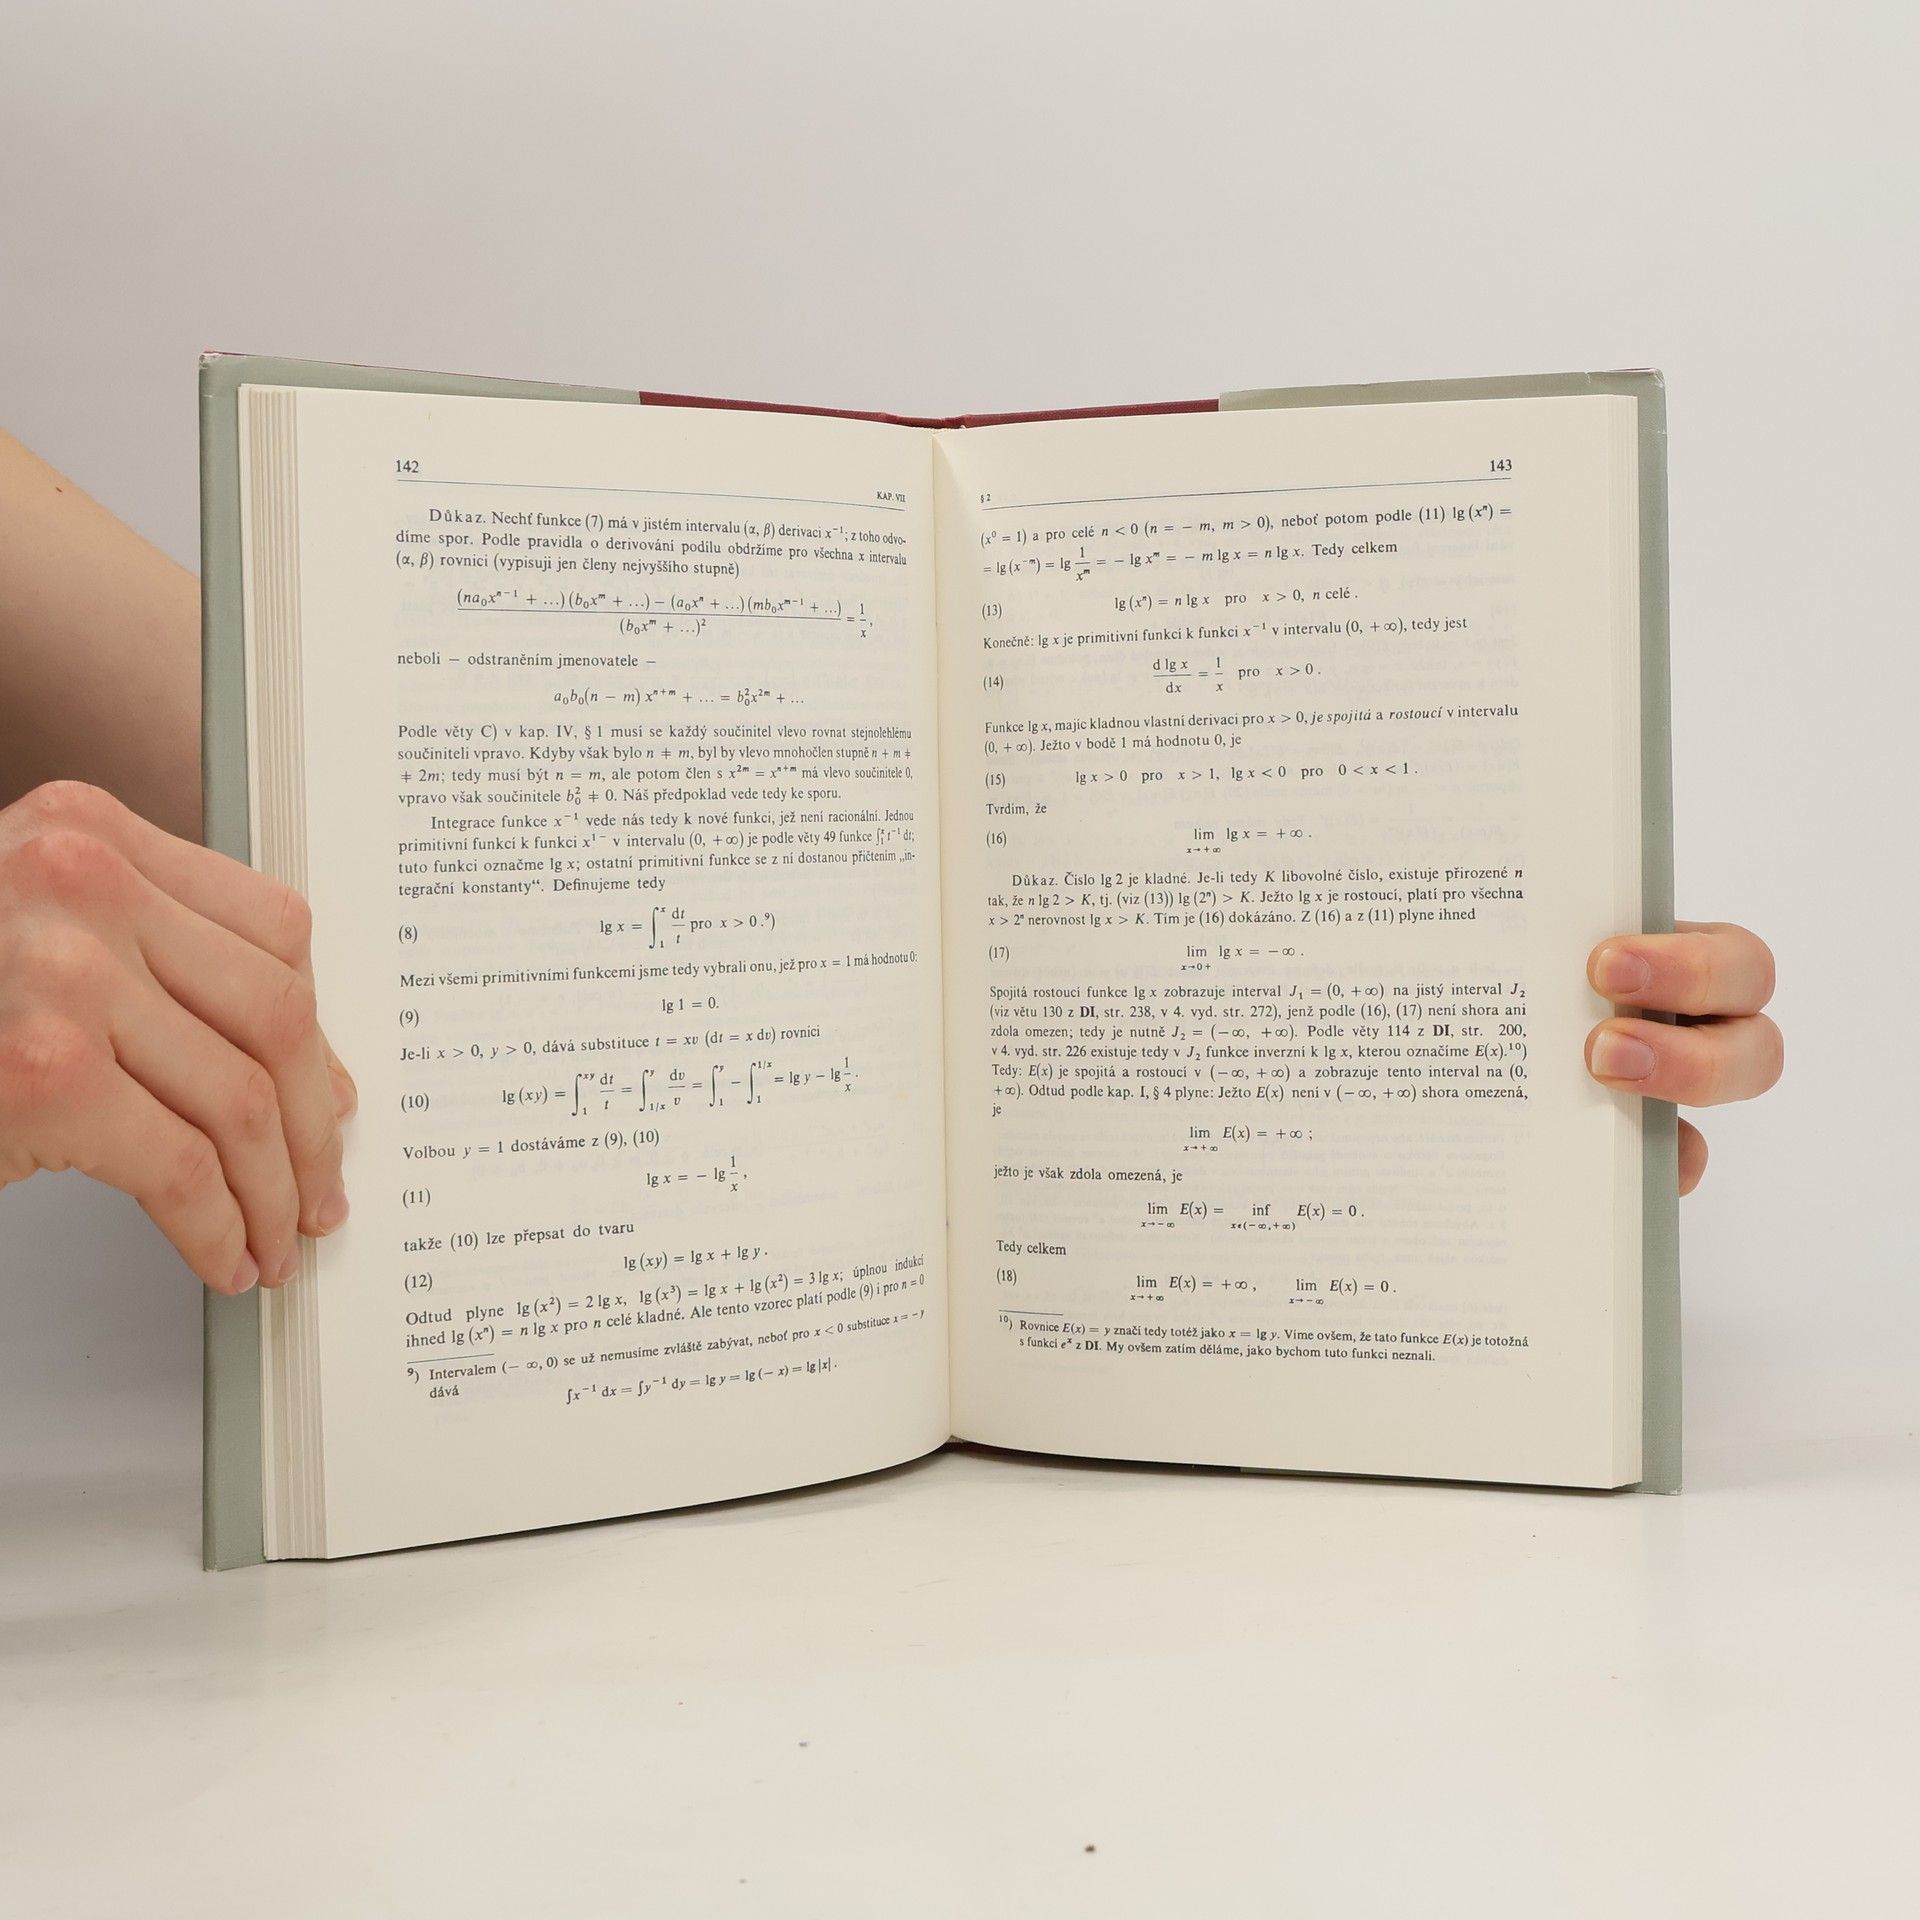 142
KAP. VII
Důkaz. Nechť funkce (7) má v jistém intervalu (α, β) derivaci x⁻¹; z toho odvo-
díme spor. Podle pravidla o derivování podílu obdržíme pro všechna x intervalu
(α, β) rovnici (vypisuji jen členy nejvyššího stupně)
(na₀xⁿ⁻¹ + ...)(b₀xᵐ + ...) − (a₀xⁿ + ...)(mb₀xᵐ⁻¹ + ...) / (b₀xᵐ + ...)² = 1/x,
neboli — odstraněním jmenovatele —
a₀b₀(n − m) xⁿ⁺ᵐ + ... = b₀²x²ᵐ + ...
Podle věty C) v kap. IV, § 1 musí se každý součinitel vlevo rovnat stejnolehlému
součiniteli vpravo. Kdyby však bylo n ≠ m, byl by vlevo mnohočlen stupně n + m ≠
≠ 2m; tedy musí být n = m, ale potom člen s x²ᵐ = xⁿ⁺ᵐ má vlevo součinitele 0,
vpravo však součinitele b₀² ≠ 0. Náš předpoklad vede tedy ke sporu.
Integrace funkce x⁻¹ vede nás tedy k nové funkci, jež není racionální. Jednou
primitivní funkcí k funkci x¹⁻ v intervalu (0, +∞) je podle věty 49 funkce ∫₁ˣ t⁻¹ dt;
tuto funkci označme lg x; ostatní primitivní funkce se z ní dostanou přičtením „in-
tegrační konstanty“. Definujeme tedy
(8) lg x = ∫₁ˣ dt/t pro x > 0.⁹)
Mezi všemi primitivními funkcemi jsme tedy vybrali onu, jež pro x = 1 má hodnotu 0:
(9) lg 1 = 0.
Je-li x > 0, y > 0, dává substituce t = xv (dt = x dv) rovnici
(10) lg (xy) = ∫₁ˣʸ dt/t = ∫_{1/x}^y dv/v = ∫₁ʸ − ∫₁^{1/x} = lg y − lg 1/x.
Volbou y = 1 dostáváme z (9), (10)
(11) lg x = − lg 1/x,
takže (10) lze přepsat do tvaru
(12) lg (xy) = lg x + lg y.
Odtud plyne lg (x²) = 2 lg x, lg (x³) = lg x + lg (x²) = 3 lg x; úplnou indukcí
ihned lg (xⁿ) = n lg x pro n celé kladné. Ale tento vzorec platí podle (9) i pro n = 0
⁹) Intervalem (− ∞, 0) se už nemusíme zvláště zabývat, neboť pro x < 0 substituce x = − y
dává
∫x⁻¹ dx = ∫y⁻¹ dy = lg y = lg (− x) = lg |x|.
143
§ 2
(x⁰ = 1) a pro celé n < 0 (n = − m, m > 0), neboť potom podle (11) lg (xⁿ) =
= lg (x⁻ᵐ) = lg 1/xᵐ = − lg xᵐ = − m lg x = n lg x. Tedy celkem
(13) lg (xⁿ) = n lg x pro x > 0, n celé.
Konečně: lg x je primitivní funkcí k funkci x⁻¹ v intervalu (0, +∞), tedy jest
(14) d lg x/dx = 1/x pro x > 0.
Funkce lg x, majíc kladnou vlastní derivaci pro x > 0, je spojitá a rostoucí v intervalu
(0, +∞). Ježto v bodě 1 má hodnotu 0, je
(15) lg x > 0 pro x > 1, lg x < 0 pro 0 < x < 1.
Tvrdím, že
(16) lim_{x→+∞} lg x = +∞.
Důkaz. Číslo lg 2 je kladné. Je-li tedy K libovolné číslo, existuje přirozené n
tak, že n lg 2 > K, tj. (viz (13)) lg (2ⁿ) > K. Ježto lg x je rostoucí, platí pro všechna
x > 2ⁿ nerovnost lg x > K. Tím je (16) dokázáno. Z (16) a z (11) plyne ihned
(17) lim_{x→0+} lg x = −∞.
Spojitá rostoucí funkce lg x zobrazuje interval J₁ = (0, +∞) na jistý interval J₂
(viz větu 130 z DI, str. 238, v 4. vyd. str. 272), jenž podle (16), (17) není shora ani
zdola omezen; tedy je nutně J₂ = (−∞, +∞). Podle věty 114 z DI, str. 200,
v 4. vyd. str. 226 existuje tedy v J₂ funkce inverzní k lg x, kterou označíme E(x).¹⁰)
Tedy: E(x) je spojitá a rostoucí v (−∞, +∞) a zobrazuje tento interval na (0,
+∞). Odtud podle kap. I, § 4 plyne: Ježto E(x) není v (−∞, +∞) shora omezená,
je
lim_{x→+∞} E(x) = +∞;
ježto je však zdola omezená, je
lim_{x→−∞} E(x) = inf_{x∈(−∞,+∞)} E(x) = 0.
Tedy celkem
(18) lim_{x→+∞} E(x) = +∞, lim_{x→−∞} E(x) = 0.
¹⁰) Rovnice E(x) = y značí tedy totéž jako x = lg y. Víme ovšem, že tato funkce E(x) je totožná
s funkcí eˣ z DI. My ovšem zatím děláme, jako bychom tuto funkci neznali.